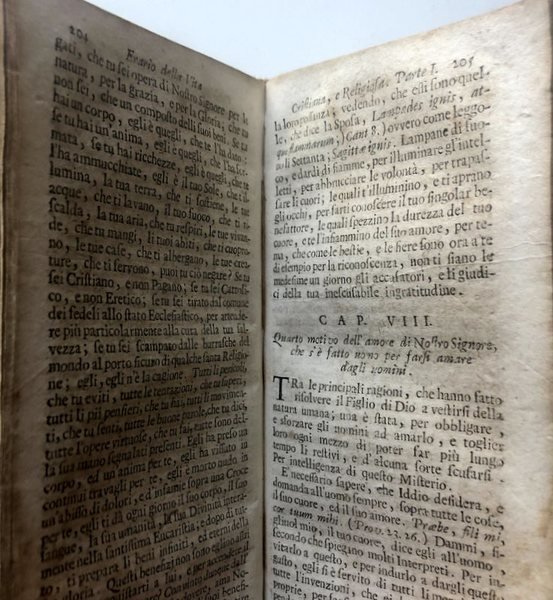 204 Erario della Vita
gati, che tu sei opera di Nostro Signore per la
natura, per la grazia, e per la Gloria; che tu
non sei, che un composto delli suoi beni. Se tu
hai un corpo, egli è quegli, che te l'ha dato;
se tu hai un'anima, egli è quegli, che l'ha for-
mata, se tu hai ricchezze, egli è quegli, che te
l'ha ammucchiate, egli è il tuo Sole, che t'il-
lumina, la tua terra, che ti sostiene, le tue
acque, che ti lavano, il tuo fuoco, che ti ri-
scalda, la tua aria, che tu respiri, le tue vivan-
de, che tu mangi, li tuoi abiti, che ti cuopro-
no, le tue case, che ti albergano, le tue crea-
ture, che ti servono, puoi tu ciò negare? Se tu
sei Cristiano, e non Pagano; se tu sei Cattoli-
co, e non Eretico; se tu sei tirato dal comune
dei fedeli allo stato Ecclesiastico, per attende-
re più particolarmente alla cura della tua sal-
vezza; se tu sei scampato dalle burrasche del
mondo al porto sicuro di qualche santa Religio-
ne; egli, egli n'è la cagione. Tutti li pericoli,
che tu eviti, tutte le tentazioni, che tu superi,
tutti li più pensieri, che tu hai, tutti li movimen-
ti, che tu senti, tutte le buone parole, che tu dici,
tutte l'opere virtuose, che tu fai, tutte son del-
la sua mano segnalati presenti. Egli ha preso un
corpo, ed un'anima per te, egli ha vissuto in
continui travagli per te, egli è morto nudo in
un'abisso di dolori, ed infame sopra una Croce
per te, egli ti dà ogni giorno il suo corpo, il suo
sangue, la sua umanità, la sua Divinità intera-
mente nella santissima Eucaristia; e dopo di tut-
to, ti prepara li beni infiniti, ed eterni della
gloria. Questi benefizj non sono eglino assai
Cristiana, e Religiosa. Parte I. 205
la loro possanza; vedendo, che essi sono quel-
le, che dice la Sposa, Lampades ignis, at-
que flammarum; (Cant 8.) ovvero come leggo-
no li Settanta; Sagittæ ignis. Lampane di fuo-
co, e dardi di fiamme, per illuminare gl'intel-
letti, per abbrucciare le volontà, per trapas-
sare li cuori; le quali t'illuminino, e ti aprano
gli occhi, per farti conoscere il tuo singolar be-
nefattore, le quali spezzino la durezza del tuo
cuore, e te l'infiammino del suo amore, per te-
ma, che come le bestie, e le fiere sono ora a te
di esempio per la riconoscenza, non ti siano le
medesime un giorno gli accusatori, e li giudi-
ci della tua inescusabile ingratitudine.
CAP. VIII.
Quarto motivo dell'amore di Nostro Signore,
che s'è fatto uomo per farsi amare
dagli uomini.
TRa le principali ragioni, che hanno fatto
risolvere il Figlio di Dio a vestirsi della
natura umana; una è stata, per obbligare,
e sforzare gli uomini ad amarlo, e toglier
loro ogni mezzo di poter far più lungo
tempo li restivi, e d'alcuna sorte scusarsi.
Per intelligenza di questo Misterio.
E necessario sapere, che Iddio desidera, e
domanda all'uomo sempre, sopra tutte le cose,
il suo cuore, ed il suo amore. Præbe, fili mi,
cor tuum mihi. (Prov. 23. 26.) Dammi, fi-
gliuol mio, il tuo cuore, dice egli all'uomo,
secondo che spiegano molti Interpreti. Per in-
vitarlo a questo, e per indurlo a dargli questo
gusto, egli si è servito di tutti li mo
tutte l'invenzioni, che si
proprie, per fa